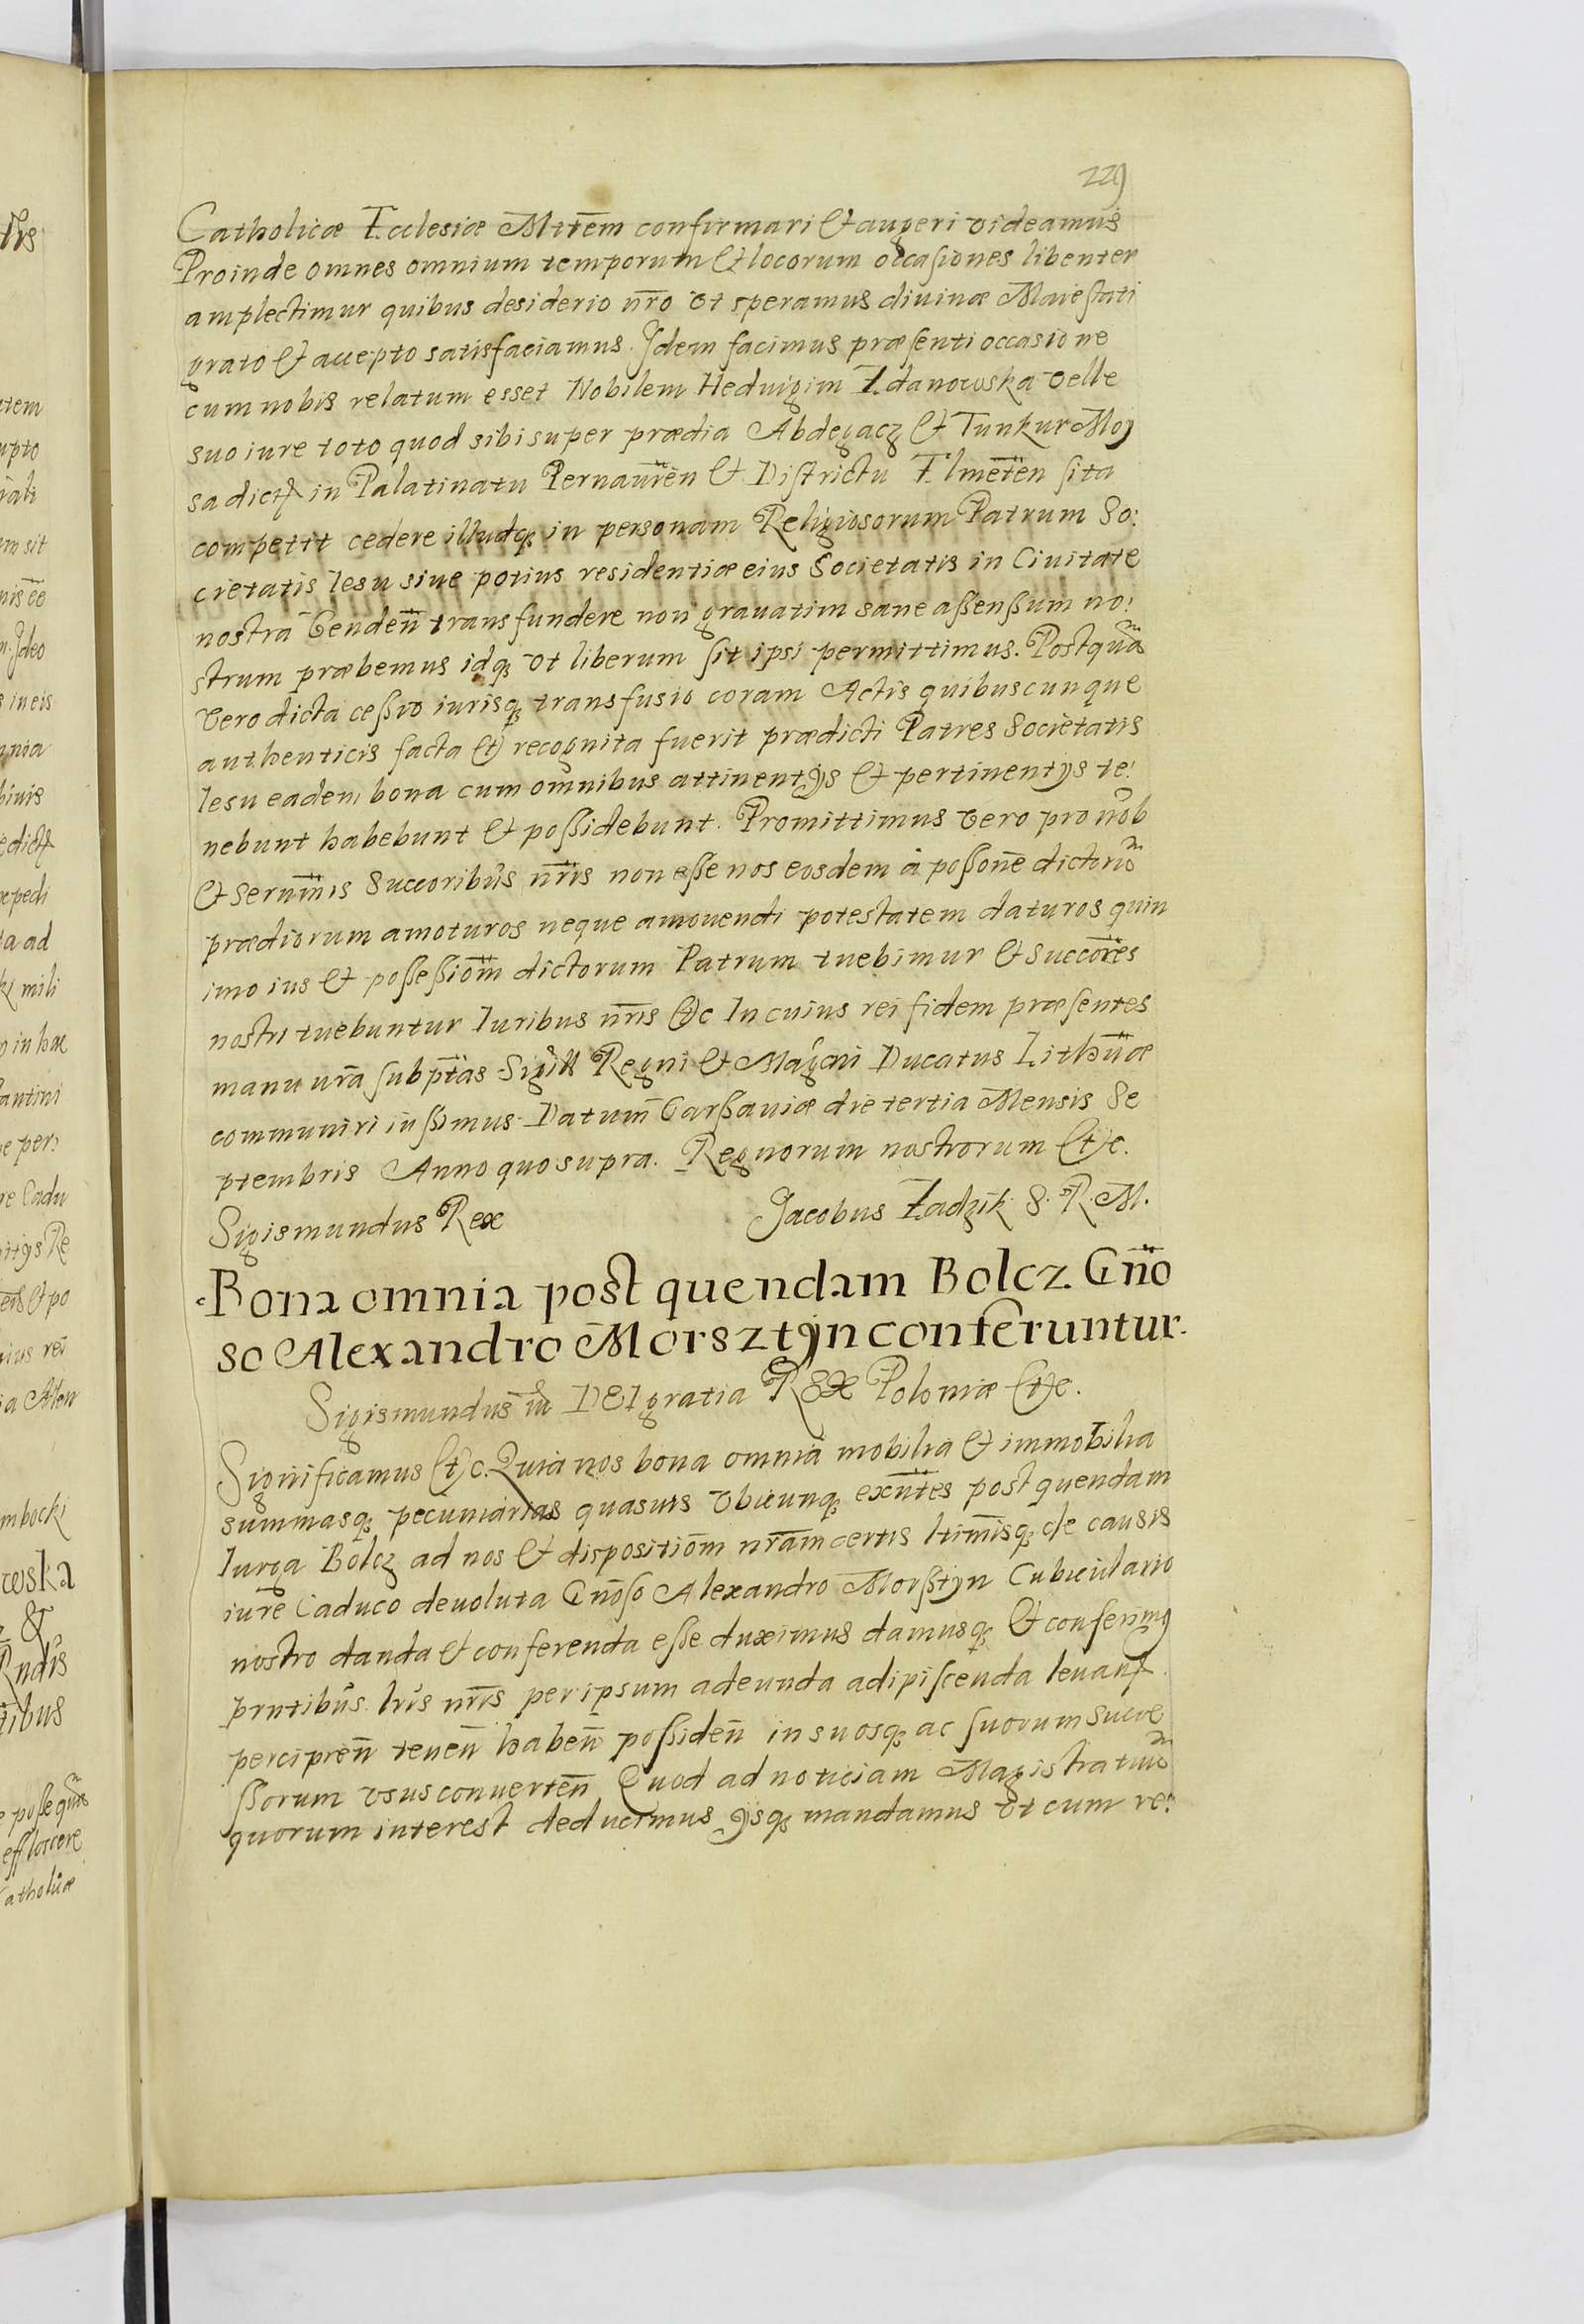 229
Catholicæ Ecclesiæ Mttēm confirmari & augeri videamus
Proinde omnes omnium temporum & locorum occasiones libenter
amplectimur quibus desiderio nr̄o vt speramus diuinæ Maiestati
grato & accepto satisfaciamus. Idem facimus præsenti occasione
cum nobis relatum esset Nobilem Heduigim Zdanowska velle
suo iure toto quod sibi super prædia Abdegacz & Tunkur Moy
sa dict in Palatinatu Pernauren̄ & Districtu Elmeten̄ sita
competit cedere illudq; in personam Religiosorum Patrum So:
cietatis Iesu siue potius residentiæ eius Societatis in Ciuitate
nostra Venden̄ transfundere non grauatim sane assensum no:
strum præbemus idq; vt liberum sit ipsi permittimus. Postquā
vero dicta cessio iurisq; transfusio coram Actis quibuscunque
authenticis facta et recognita fuerit prædicti Patres Societatis
Iesu eadem bona cum omnibus attinentijs & pertinentijs te:
nebunt habebunt & possidebunt. Promittimus vero pro nob
& Serenmis Succoribus nr̄is non esse nos eosdem à posson̄e dictorū
prædiorum amoturos neque amouendi potestatem daturos quin
imo ius & possessiom̄ dictorum Patrum tuebimur & Succores
nostri tuebuntur Iuribus nr̄is etc In cuius rei fidem præsentes
manu nr̄a subptas Sigill Regni & Magni Ducatus Lithuæ
communiri iussimus. Datum Varsauiæ die tertia Mensis Se
ptembris Anno quo supra. Regnorum nostrorum etc.
Sigismundus Rex Jacobus Zadzik S. R. M.
Bona omnia post quendam Bolcz. Gn̄o
so Alexandro Morsztyn conferuntur.
Sigismundus iii DEI gratia REX Poloniæ etc.
Significamus etc. Quia nos bona omnia mobilia & immobilia
summasq; pecuniarias quasuis vbicunq; exn̄tes post quendam
Iurga Bolcz ad nos & dispositiom̄ nr̄am certis ltimisq; de causis
iure Caduco deuoluta Gn̄oso Alexandro Morsztyn Cubiculario
nostro danda & conferenda esse duximus damusq; & conferimus
prn̄tibus lr̄is nr̄is per ipsum adeunda adipiscenda leuand
percipien̄ tenen̄ haben̄ possiden̄ in suosq; ac suorum Succe
ssorum vsus conuerten̄ Quod ad noticiam Magistratuū
quorum interest deducimus ijsq; mandamus vt cum re: